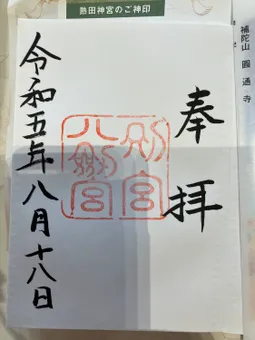 熱田神宮のご神印
補陀山 圓通寺
奉拝
八剣宮
別宮
令和五年八月十八日